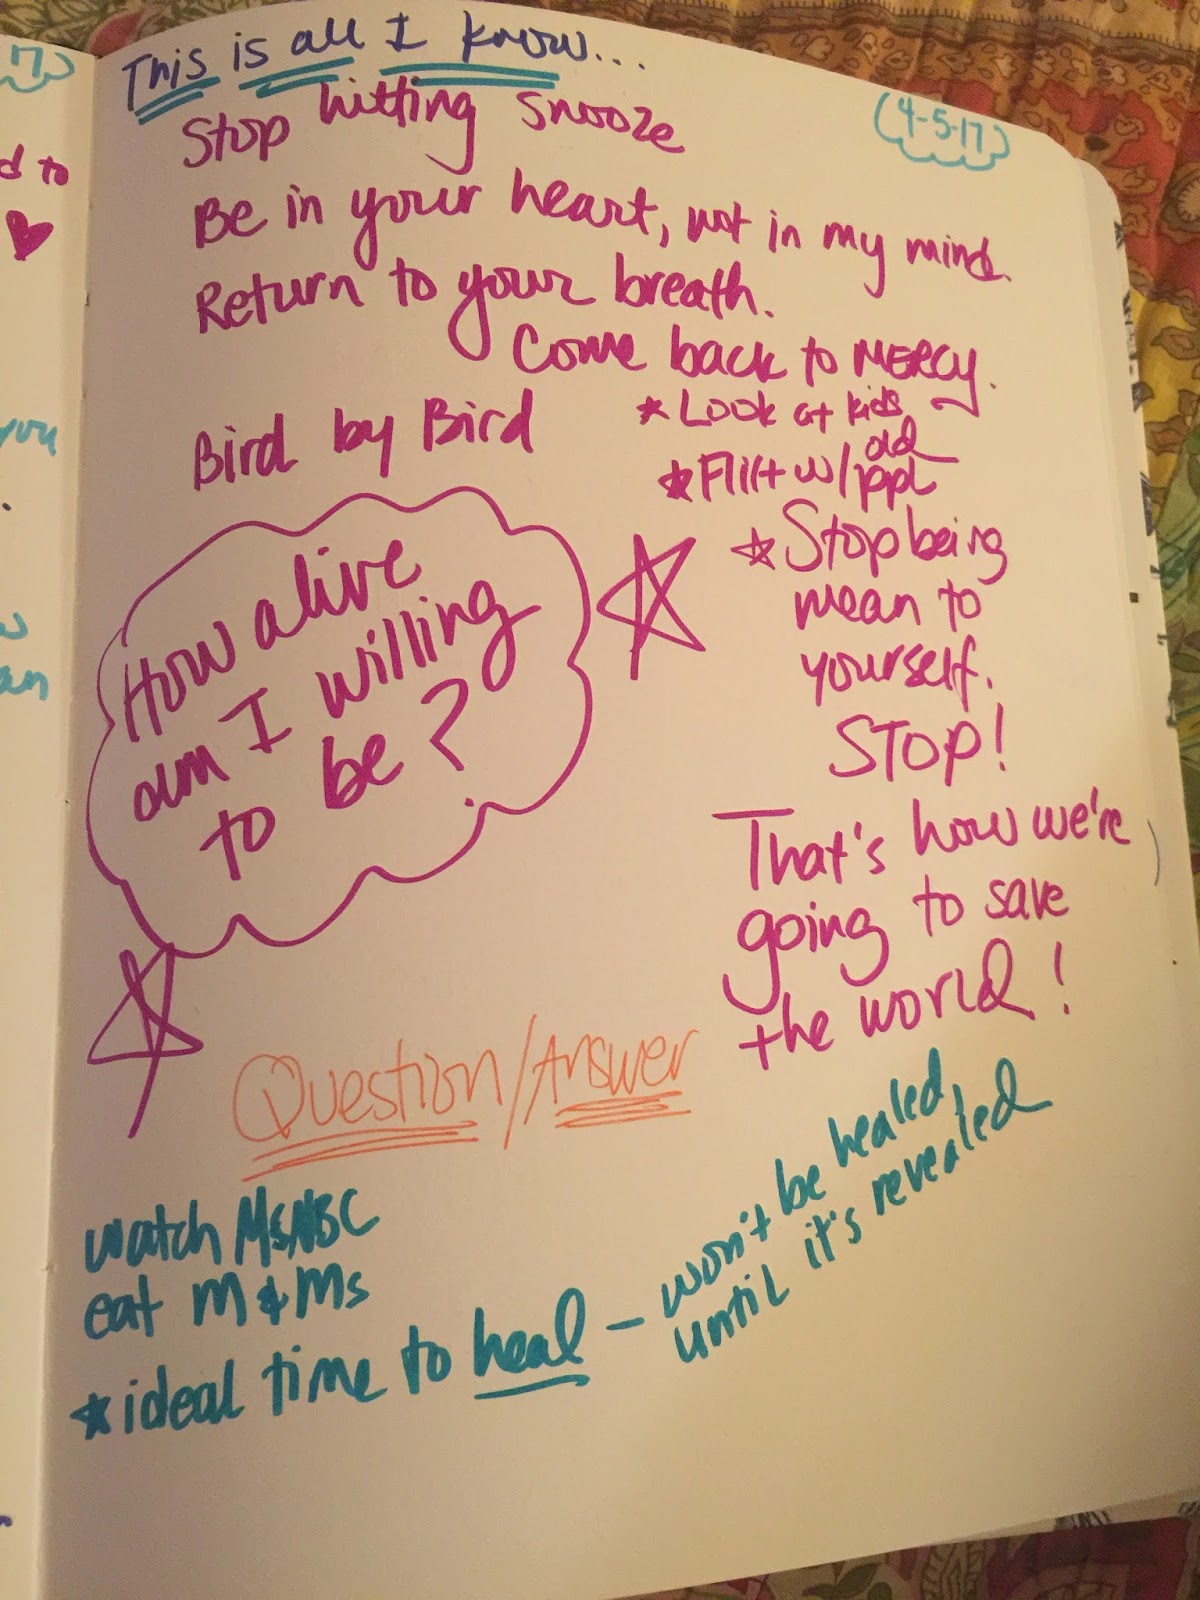 This is all I know...
(4-5-17)
Stop hitting snooze
Be in your heart, not in my mind.
Return to your breath.
Come back to MERCY.
Bird by Bird
* Look at kids
* Flirt w/ old ppl
* Stop being
mean to
yourself.
STOP!
That's how we're
going to save
the world!
How alive
am I willing
to be?
Question/Answer
watch MSNBC
eat M&Ms
* ideal time to heal – won't be healed
until it's revealed
17)
d to
you
an